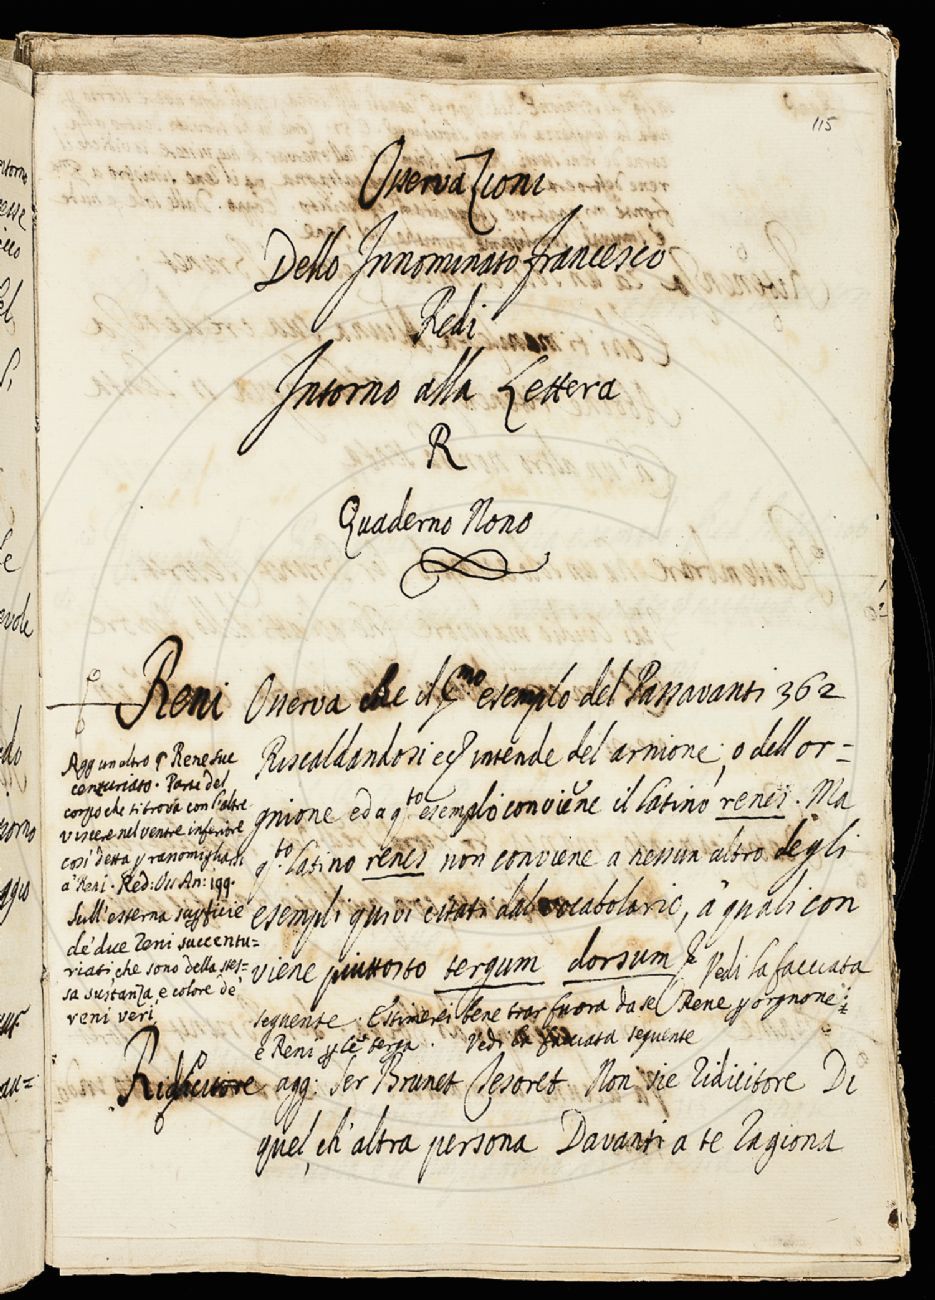 115
Osservazioni
Dello Innominato francesco
Redi
Intorno alla Lettera
R
Quaderno Nono
Reni Osserva che il esempio del Passavanti 362
Riscaldandosi intende del arnione, o dell or=
gnione ed a q.to esemplo conviene il latino renes. Ma
q.to latino renes non conviene a nessun altro degli
esempli quivi citati dal vocabolario, à quali con
viene piuttosto tergum dorsum Vedi la facciata
seguente. Estimerei bene trar fuora da se Rene orgnone
e Reni terga. Vedi la facciata seguente
Agg un altro Rene suc
centuriato. Parte del
corpo che si trova con l'altre
viscere nel ventre inferiore
così detta
a' Reni. Red: Oss An: 199.
sull'esterna superficie
de' due reni succentu=
riati che sono della stes=
sa sustanza, e colore de'
reni veri
Ridicitore agg: Ser Brunet Tesoret. Non sie ridicitore Di
quel, ch'altra persona Davanti a te ragiona